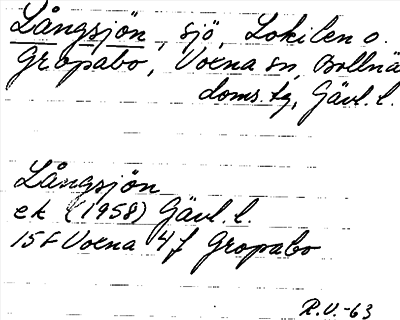 Långsjön, sjö, Lokilen o.
Gropabo, Voxna sn, Bollnä
doms. tg, Gävl. l.
Långsjön
ek (1958) Gävl. l.
15F Voxna 4f Gropabo
R.V.-63